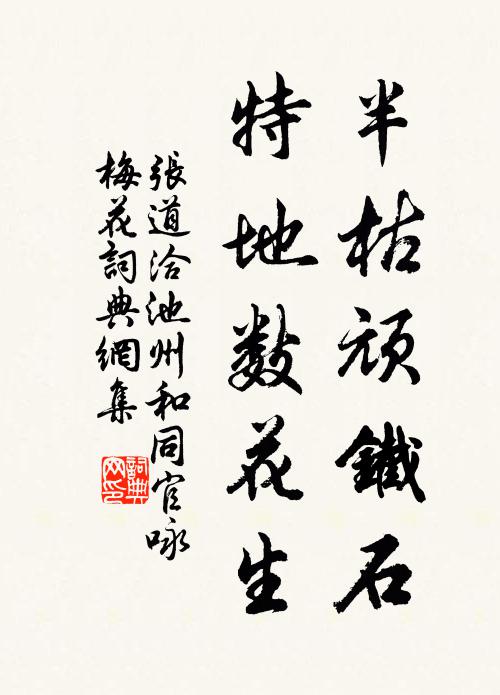 半枯頑鐵石
特地數花生
張道洽池州和同官咏
梅花詞典網集
詞典网印